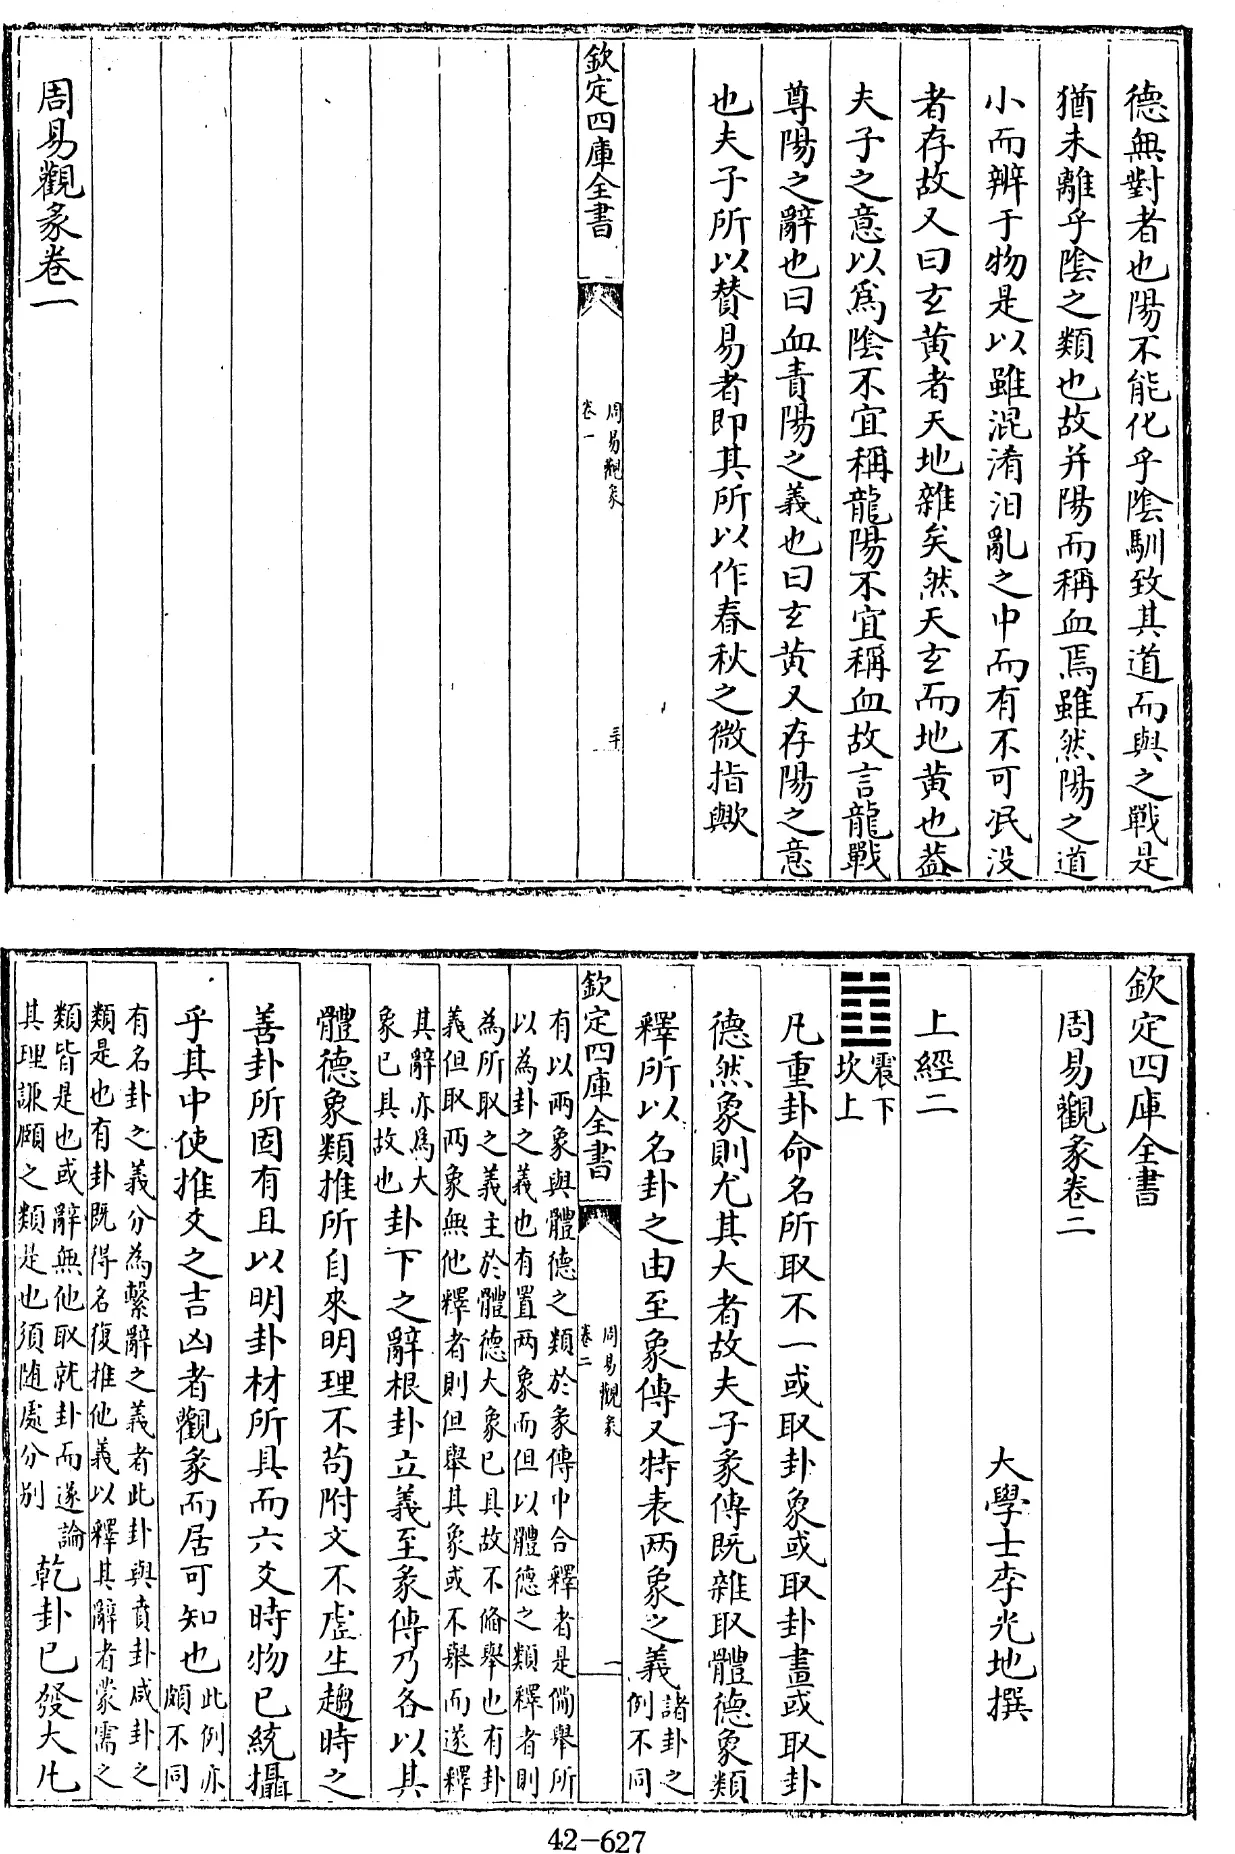 德無對者也陽不能化乎陰馴致其道而與之戰是
猶未離乎陰之類也故并陽而稱血焉雖然陽之道
小而辨于物是以雖混淆汨亂之中而有不可泯没
者存故又曰玄黄者天地雜矣然天玄而地黄也葢
夫子之意以爲陰不宜稱龍陽不宜稱血故言龍戰
尊陽之辭也曰血責陽之義也曰玄黄又存陽之意
也夫子所以賛易者即其所以作春秋之微指歟
欽定四庫全書
周易觀彖
卷一
三十
周易觀彖卷一
欽定四庫全書
周易觀彖卷二
大學士李光地撰
上經二
震下
坎上
凡重卦命名所取不一或取卦象或取卦畫或取卦
德然象則尤其大者故夫子彖傳既雜取體德象類
釋所以名卦之由至象傳又特表两象之義
諸卦之
例不同
欽定四庫全書
周易觀彖
卷二
一
有以兩象與體德之類於彖傳中合釋者是偹舉所
以為卦之義也有置两象而但以體德之類釋者則
為所取之義主於體德大象已具故不偹舉也有卦
義但取两象無他釋者則但舉其象或不舉而遂釋
其辭亦爲大
象已具故也
卦下之辭根卦立義至彖傳乃各以其
體德象類推所自來明理不茍附文不虚生趨時之
善卦所固有且以明卦材所具而六爻時物已統攝
乎其中使推爻之吉凶者觀彖而居可知也
此例亦
頗不同
有名卦之義分為繫辭之義者此卦與賁卦咸卦之
類是也有卦既得名復推他義以釋其辭者蒙需之
類皆是也或辭無他取就卦而遂論
其理謙頤之類是也須随處分别
乾卦已發大凡
42-627